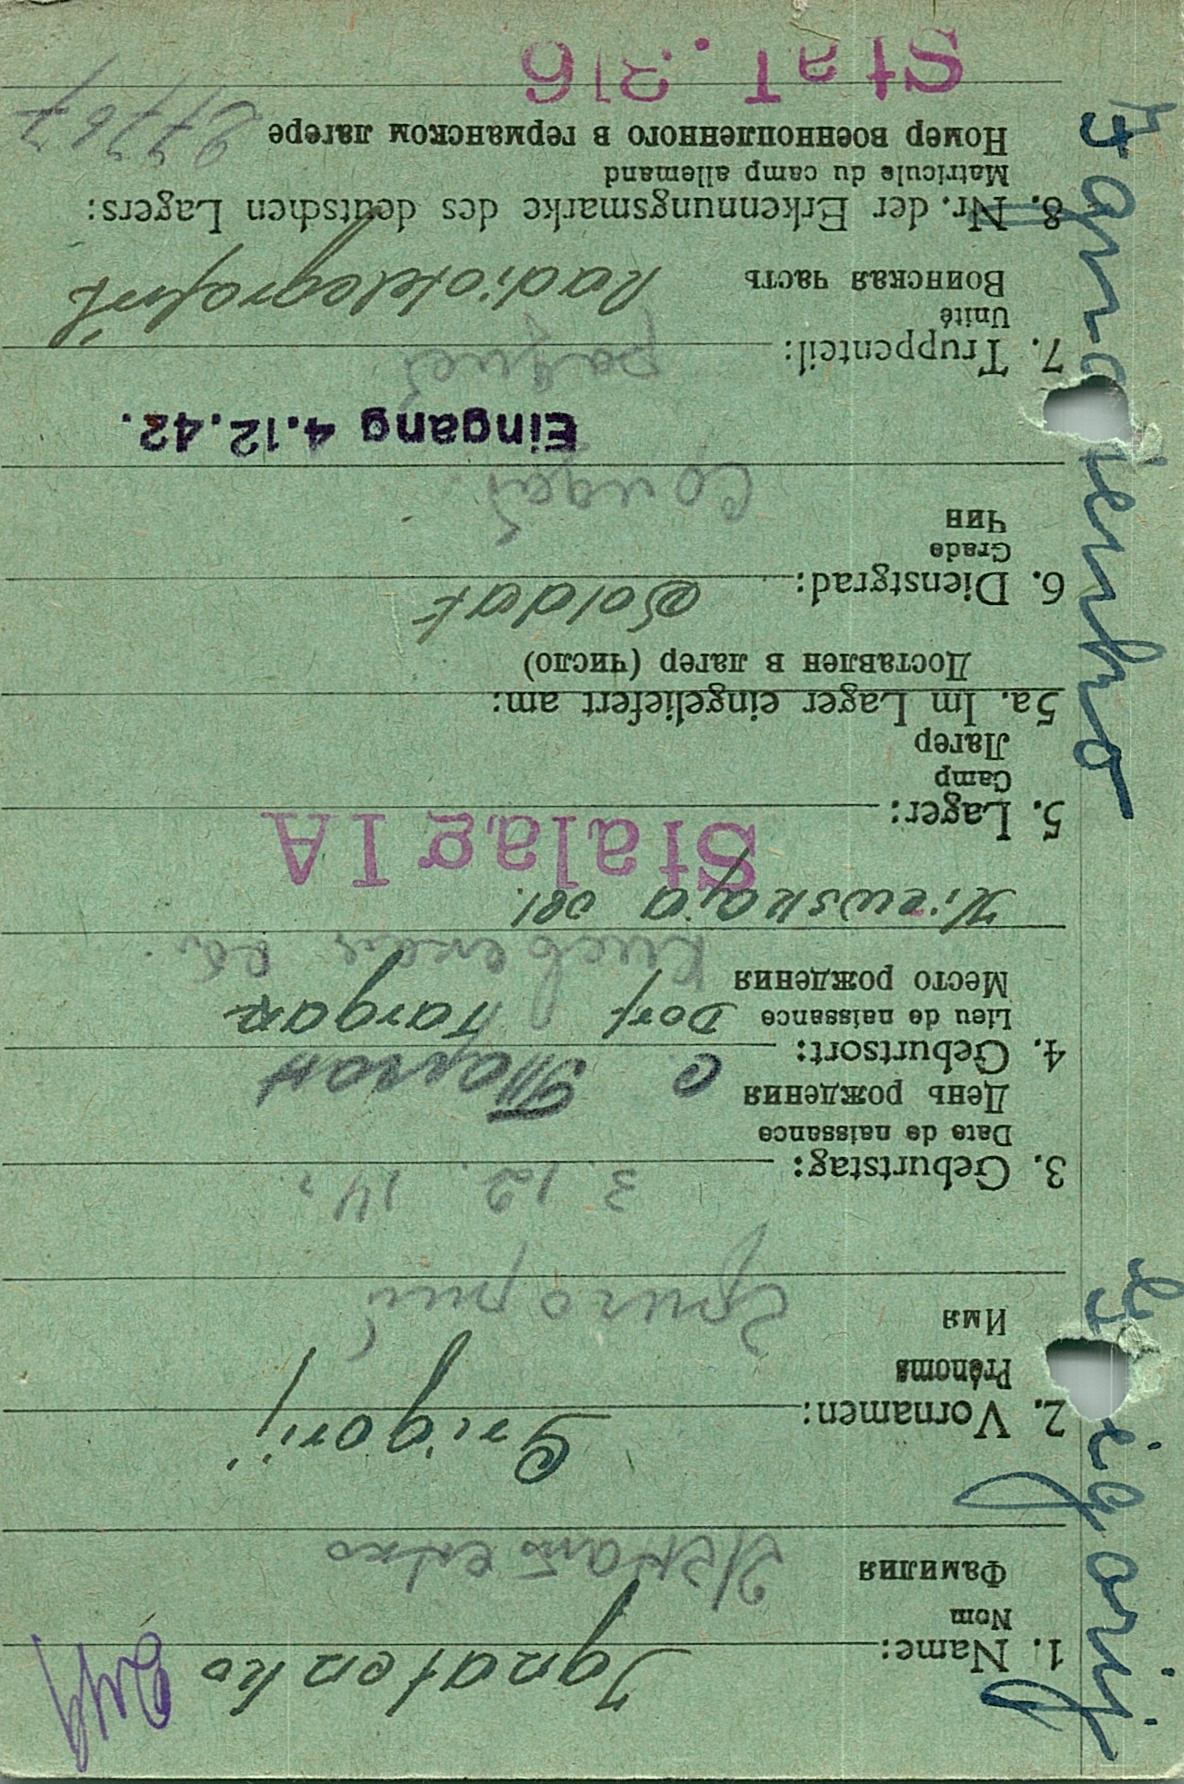 Ignatenko
1. Name:
Nom
Фамилия
Игнатенко
2. Vornamen: Grigorij
Prénoms
Имя
Григорий
3. Geburtstag: 3. 12. 14.
Date de naissance
День рождения
с. Таган
4. Geburtsort:
Lieu de naissance Dorf Targan
Место рождения
Киевская об.
Kiewskaja obl.
Stalag IA
5. Lager:
Camp
Лагерь
5a. Im Lager eingeliefert am:
Доставлен в лагерь (число)
6. Dienstgrad: Soldat
Grade
Чин
Солдат
Eingang 4.12.42.
7. Truppenteil: радист
Unité
Воинская часть Radiotelegrafist
8. Nr. der Erkennungsmarke des deutschen Lagers:
Matricule du camp allemand
Номер военнопленного в германском лагере 27767
Stal. 316
Ignatenko Grigorij